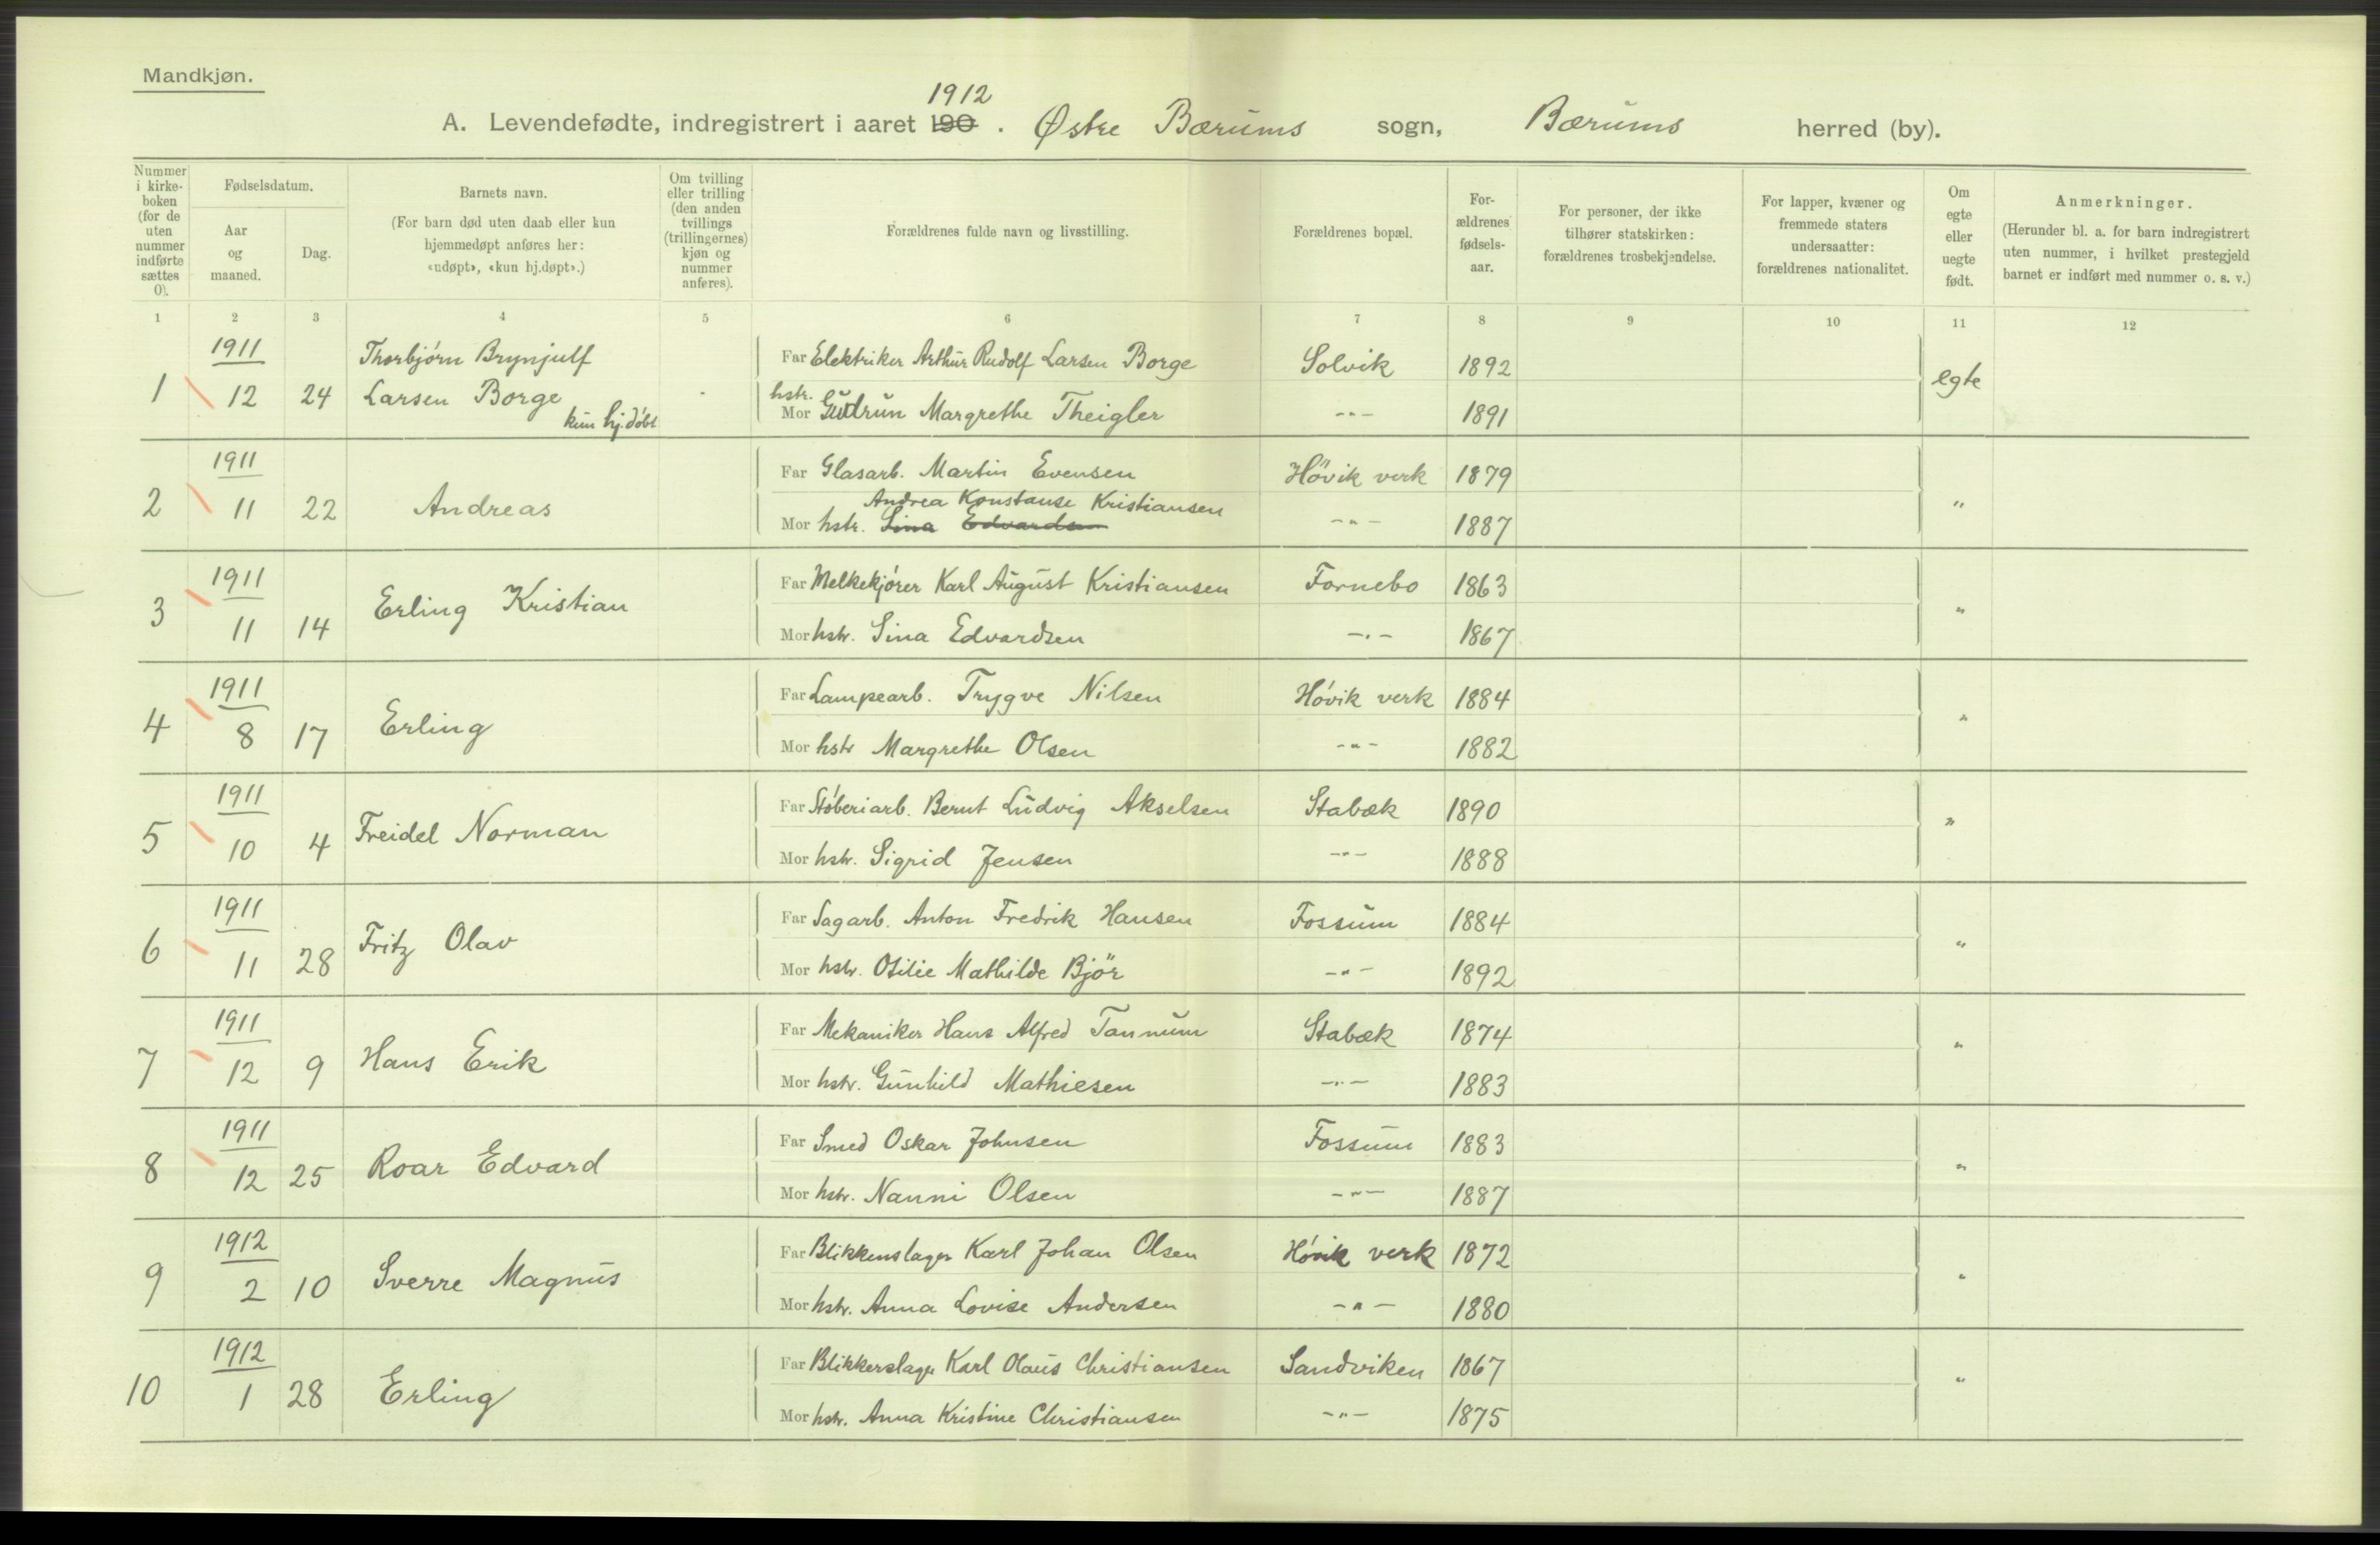 Mandkjøn.
1912
A. Levendefødte, indregistrert i aaret 190 . Østre Bærums sogn, Bærums herred (by).
Nummer i kirkeboken (for de uten nummer indførte sættes 0).
Fødselsdatum.
Aar og maaned.
Dag.
Barnets navn.
(For barn død uten daab eller kun hjemmedøpt anføres her: «udøpt», «kun hj.døpt».)
Om tvilling eller trilling (den anden tvillings (trillingernes) kjøn og nummer anføres).
Forældrenes fulde navn og livsstilling.
Forældrenes bopæl.
Forældrenes fødselsaar.
For personer, der ikke tilhører statskirken: forældrenes trosbekjendelse.
For lapper, kvæner og fremmede staters undersaatter: forældrenes nationalitet.
Om egte eller uegte født.
Anmerkninger.
(Herunder bl. a. for barn indregistrert uten nummer, i hvilket prestegjeld barnet er indført med nummer o. s. v.)
1 2 3 4 5 6 7 8 9 10 11 12
1911 Thorbjørn Brynjulf Far Elektriker Arthur Rudolf Larsen Borge Solvik 1892
1 12 24 Larsen Borge egte
kun hj.døbt hstr. Mor Gudrun Margrethe Theigler -"- 1891
1911 Far Glasarb. Martin Evensen Høvik verk 1879
2 11 22 Andreas Andrea Konstanse Kristiansen "
Mor hstr. Sina Edvardsen -"- 1887
1911 Far Melkekjører Karl August Kristiansen Fornebo 1863
3 11 14 Erling Kristian "
Mor hstr. Sina Edvardsen -"- 1867
1911 Far Lampearb. Trygve Nilsen Høvik verk 1884
4 8 17 Erling "
Mor hstr Margrethe Olsen -"- 1882
1911 Far Støberiarb. Bernt Ludvig Akselsen Stabæk 1890
5 10 4 Freidel Norman "
Mor hstr. Sigrid Jensen -"- 1888
1911 Far Sagarb. Anton Fredrik Hansen Fossum 1884
6 11 28 Fritz Olav "
Mor hstr. Otilie Mathilde Bjør -"- 1892
1911 Far Mekaniker Hans Alfred Tannum Stabæk 1874
7 12 9 Hans Erik "
Mor hstr. Gunhild Mathiesen -"- 1883
1911 Far Smed Oskar Johnsen Fossum 1883
8 12 25 Roar Edvard "
Mor hstr. Nanni Olsen -"- 1887
1912 Far Blikkenslager Karl Johan Olsen Høvik verk 1872
9 2 10 Sverre Magnus "
Mor hstr. Anna Lovise Andersen -"- 1880
1912 Far Blikkenslager Karl Olaus Christiansen Sandviken 1867
10 1 28 Erling "
Mor hstr. Anna Kristine Christiansen -"- 1875